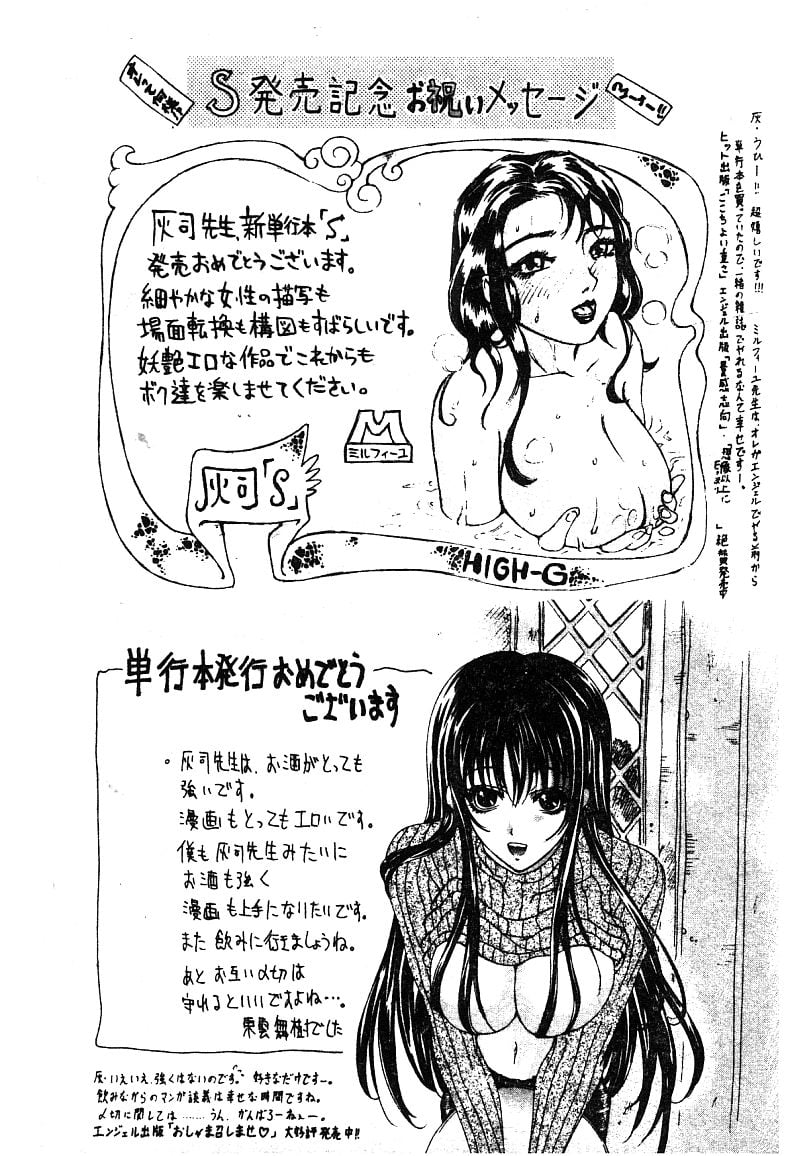 S発売記念お祝いメッセージ
灰司先生、新単行本「S」
発売おめでとうございます。
細やかな女性の描写も
場面転換も構図もすばらしいです。
妖艶エロな作品でこれからも
ボク達を楽しませてください。
M
ミルフィーユ
灰司「S」
HIGH-G
灰・うひー!! 超嬉しいです!!! ミルフィーユ先生は、オレがエンジェルでやる前から
単行本も買っていたので、一緒の雑誌でやれるなんて幸せですー。
ヒット出版「ここちよい重さ」エンジェル出版「量感志向」
絶賛発売中
単行本発行おめでとう
ございます
。灰司先生は、お酒がとっても
強いです。
漫画もとってもエロいです。
僕も灰司先生みたいに
お酒も強く
漫画も上手になりたいです。
また飲みに行きましょうね。
あとお互い〆切は
守れるといいですよね…。
東雲舞樹でした
灰・いえいえ、強くはないのです。好きなだけですー。
飲みながらのマンガ談義は幸せな時間ですね。
〆切に関しては………うん、がんばろーねぇー。
エンジェル出版「おしゃま召しませ♡」大好評発売中!!